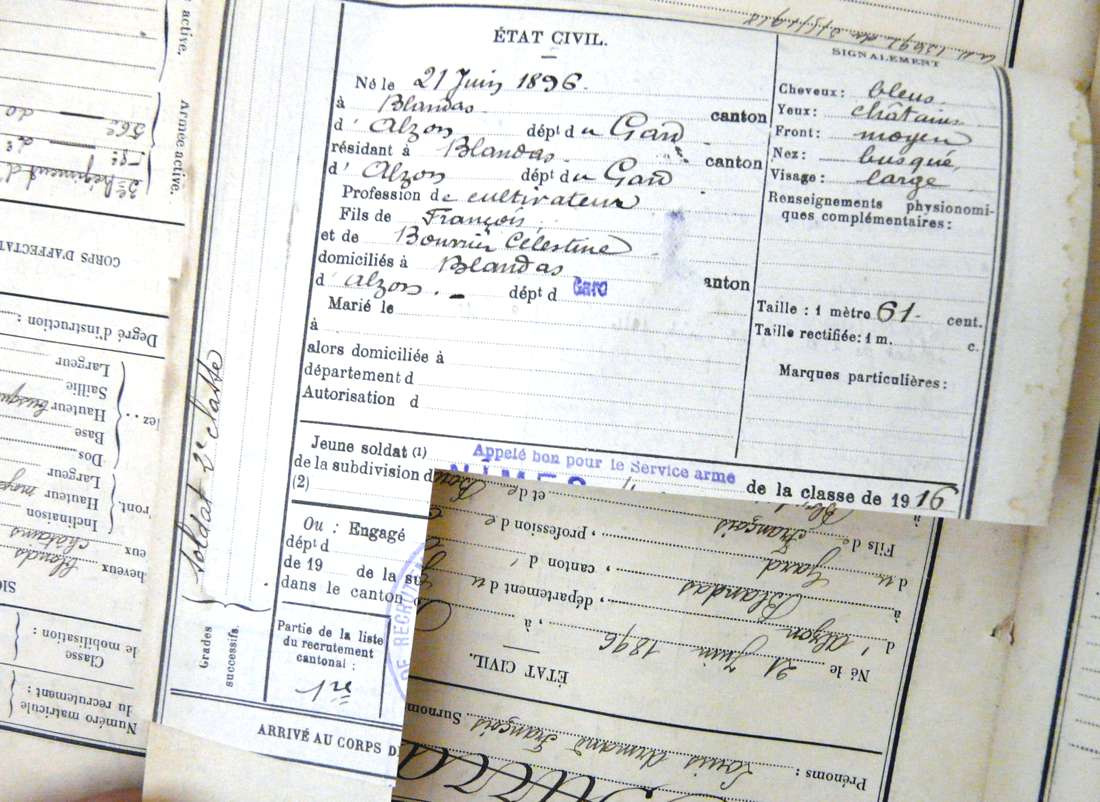 ÉTAT CIVIL.
Né le 21 Juin 1896
à Blandas canton
d' Alzon dépt du Gard
résidant à Blandas canton
d' Alzon dépt du Gard
Profession de cultivateur
Fils de François
et de Bourrier Célestine
domiciliés à Blandas
d' Alzon dépt d Gard anton
Marié le
à
alors domiciliée à
département d
Autorisation d
SIGNALEMENT
Cheveux : bleus
Yeux : châtains
Front : moyen
Nez : busqué
Visage : large
Renseignements physionomi-
ques complémentaires :
Taille : 1 mètre 61 cent.
Taille rectifiée : 1 m. c.
Marques particulières :
Jeune soldat (1) Appelé bon pour le Service armé
de la subdivision d NÎMES de la classe de 1916
(2)
Ou : Engagé
dépt d
de 19 de la su
dans le canton
DE RECRUTEM
Partie de la liste
du recrutement
cantonal :
1re
ARRIVÉ AU CORPS D
Soldat 2e classe
Grades
successifs.
Prénoms : Louis Armand François Surnom
ÉTAT CIVIL.
Né le 21 Juin 1896, à
d' Alzon, département du
à Blandas, canton d'
du Gard, profession de
Fils de François et de
à
Numéro matricule
du recrutement
Classe
de mobilisation :
SIG
heveux blonds
eux châtains
Inclinaison
ront. Hauteur moye
Largeur
Dos
Base
ez. Hauteur busqué
Saillie
Largeur
Degré d'instruction :
CORPS D'AFFECTAT
Armée active.
3e Régiment d'
56e do
active.